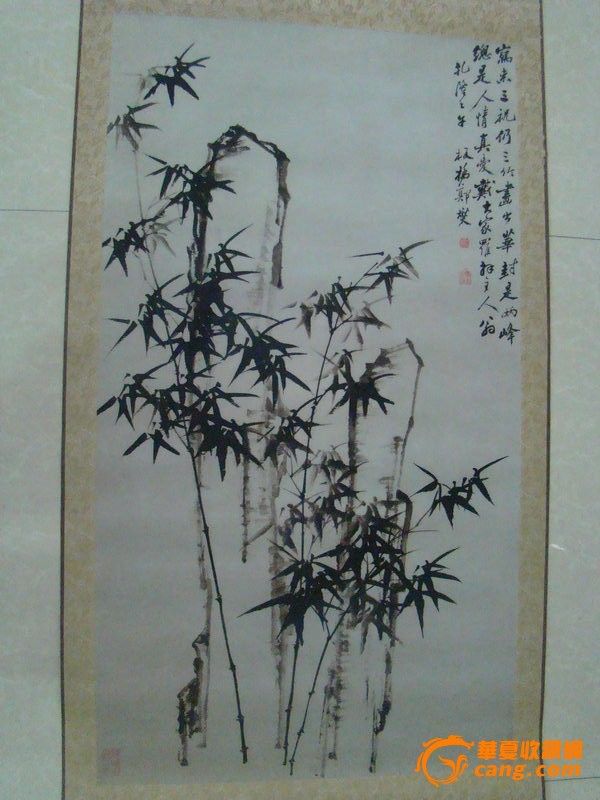 寫来三祝仍三竹畫出華封是两峰
總是人情真愛戴大家羅拜主人翁
乾隆壬午 板橋鄭燮
華夏收藏網
cang.com